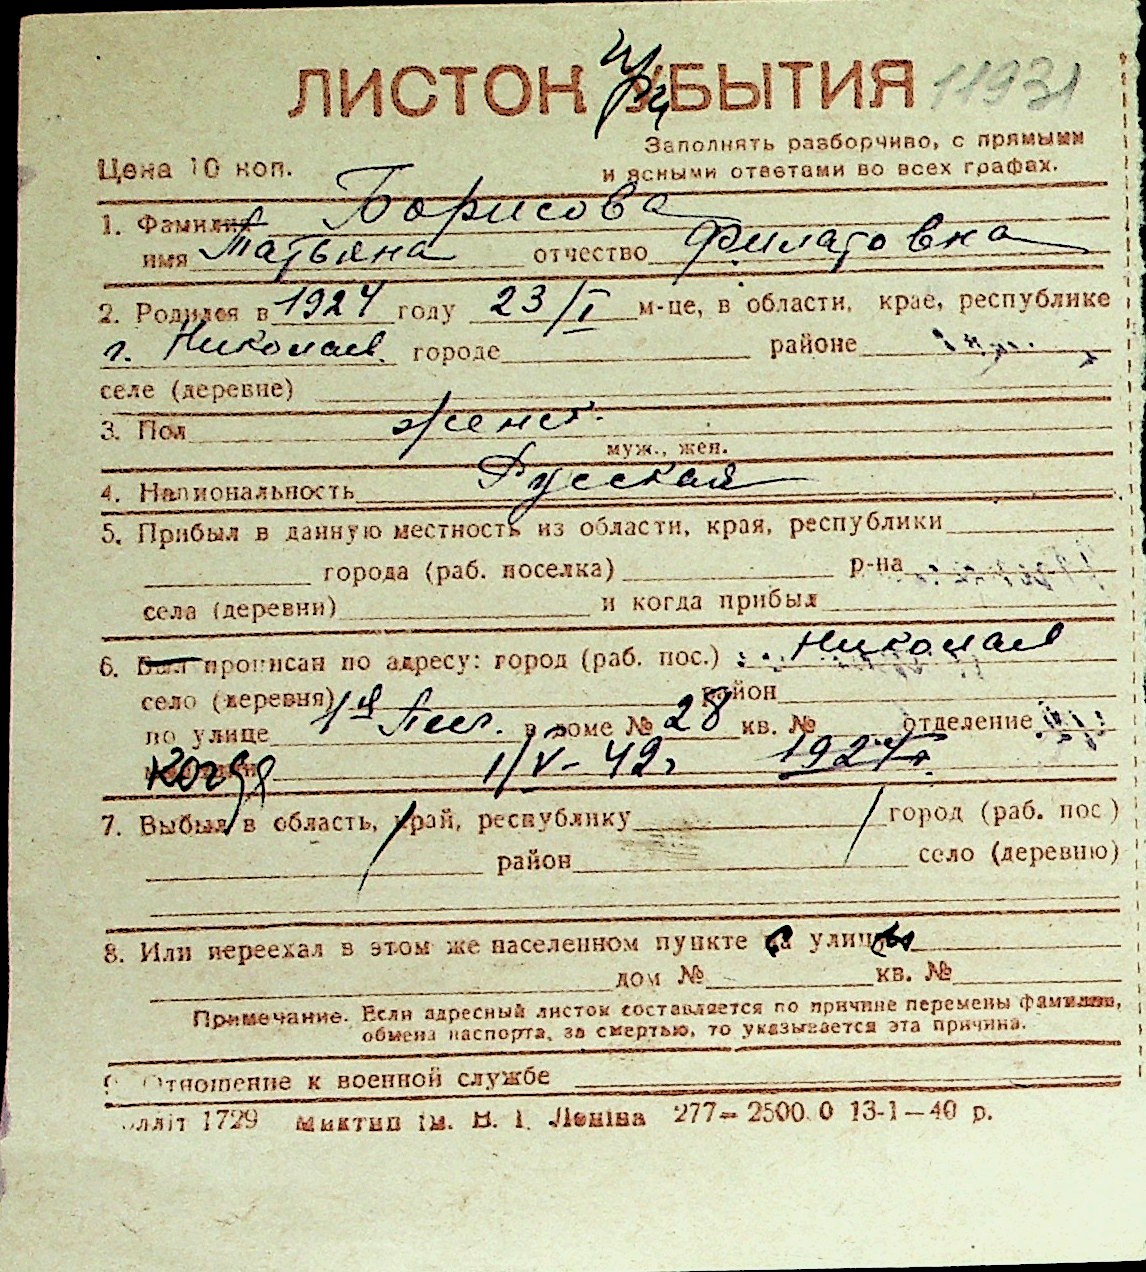 ЛИСТОК УБЫТИЯ 11931
Заполнять разборчиво, с прямыми
Цена 10 коп. и ясными ответами во всех графах.
1. Фамилия Борисова
имя Татьяна отчество Филатовна
2. Родился в 1924 году 23/I м-це, в области, крае, республике
г. Николаев. городе районе
селе (деревне)
3. Пол женст.
муж., жен.
4. Национальность Русская
5. Прибыл в данную местность из области, края, республики
города (раб. поселка) р-на
села (деревни) и когда прибыл
6. Был прописан по адресу: город (раб. пос.) Николаев
село (деревня) район
по улице 1я в доме № 28 кв. № отделение
когда 1/V-42г 1924
7. Выбыл в область, край, республику город (раб. пос.)
район село (деревню)
8. Или переехал в этом же населенном пункте с улицы
дом № кв. №
Примечание. Если адресный листок составляется по причине перемены фамилии,
обмена паспорта, за смертью, то указывается эта причина.
9. Отношение к военной службе
1729 ім. В. І. Леніна 277—2500.0 13-1—40 р.